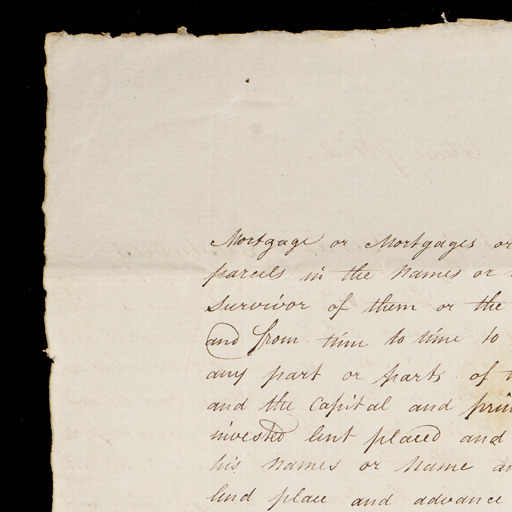 Mortgage or Mortgages or
parcels in the Names or
Survivor of them or the
and from time to time to
any part or parts of
and the Capital and prin
invested lent placed and
his Names or Name an
lend place and advance